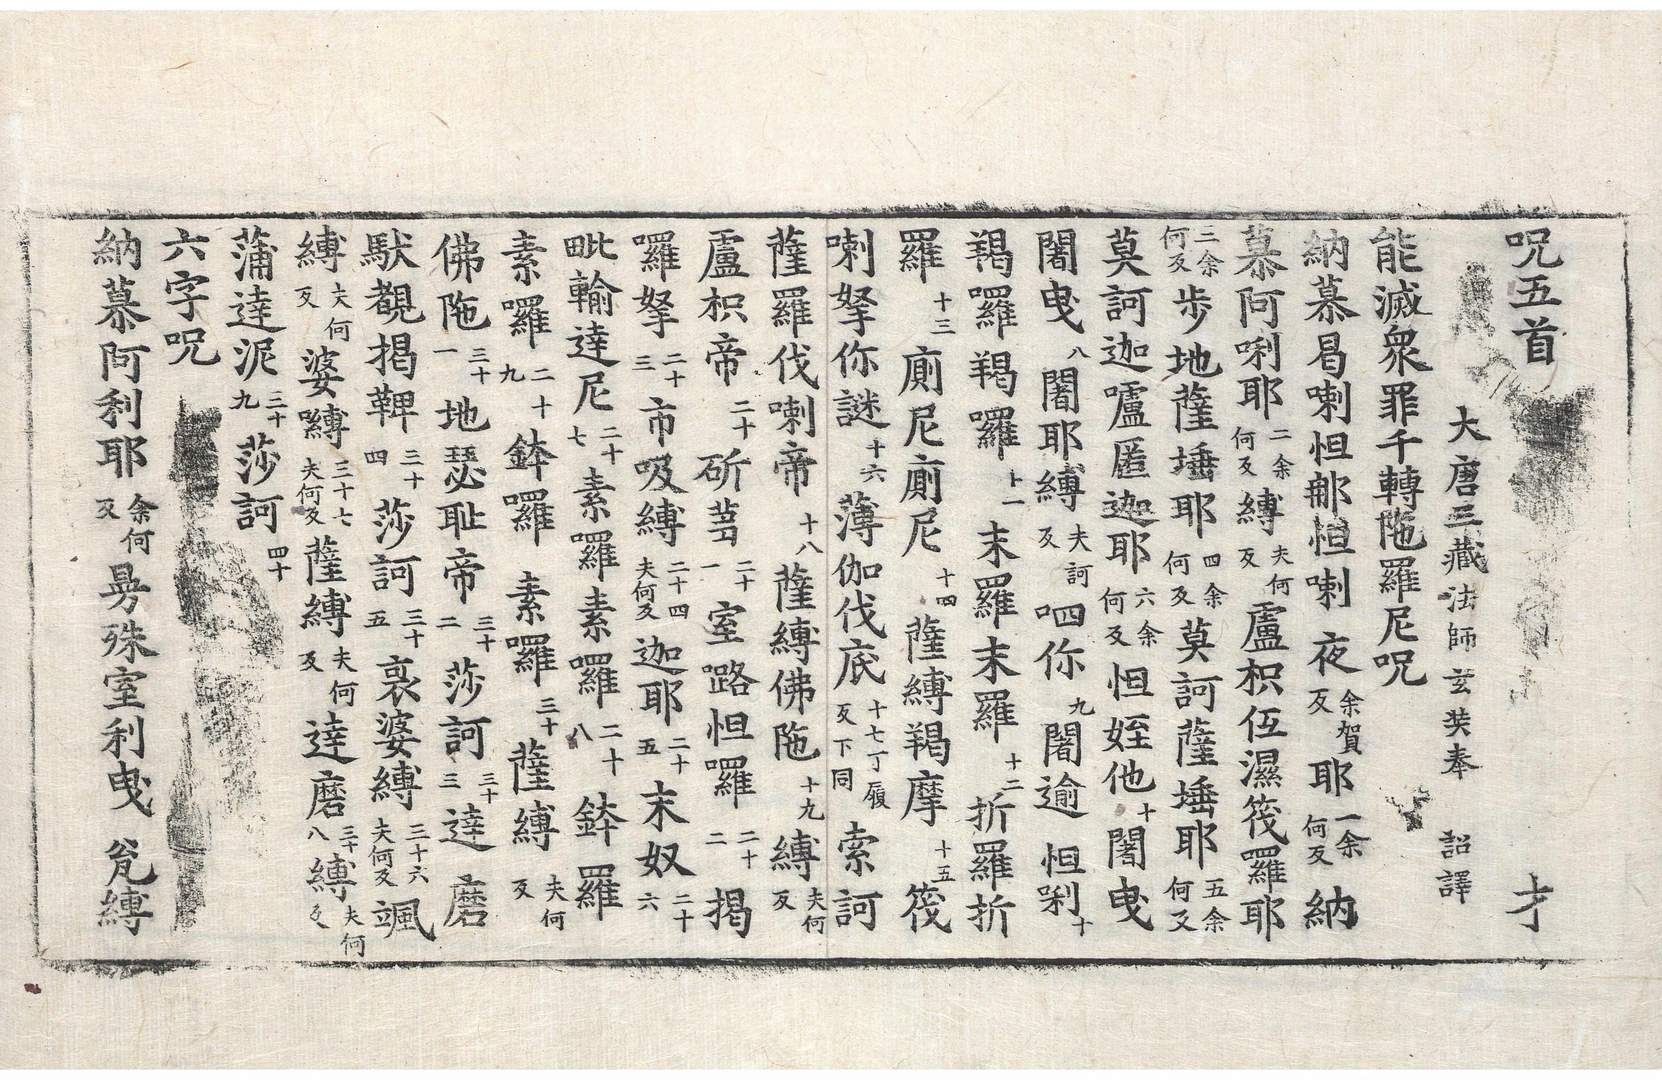 呪五首 才
大唐三藏法師玄奘奉 詔譯
能滅衆罪千轉陁羅尼呪
納慕曷喇怛郍怛喇夜余賀反耶一余何反納
慕阿唎耶二余何反縛夫何反盧枳伍濕筏羅耶
三余何反步地薩埵耶四余何反莫訶薩埵耶五余何反
莫訶迦嚧匿迦耶六余何反怛姪他十闍曳
闍曳八闍耶縛夫訶反呬你九闍逾怛唎十
羯囉羯囉十一末羅末羅十二折羅折
羅十三廁尼廁尼十四薩縛羯摩十五筏
喇拏你謎十六薄伽伐底十七丁履反下同索訶
薩羅伐喇帝十八薩縛佛陁十九縛夫何反
盧枳帝二十斫芻二十一室路怛羅二十二揭
囉拏二十三市吸縛二十四夫何反迦耶二十五末奴二十六
毗輸達尼二十七素囉素囉二十八鉢羅
素囉二十九鉢囉素囉三十薩縛夫何反
佛陁三十一地瑟耻帝三十二莎訶三十三達磨
馱覩揭鞞三十四莎訶三十五裒婆縛三十六夫何反颯
縛夫何反婆嚩三十七夫何反薩縛夫何反達磨三十八縛夫何反
蒲達泥三十九莎訶四十
六字呪
納慕阿利耶余何反曼殊室利曳瓮縛